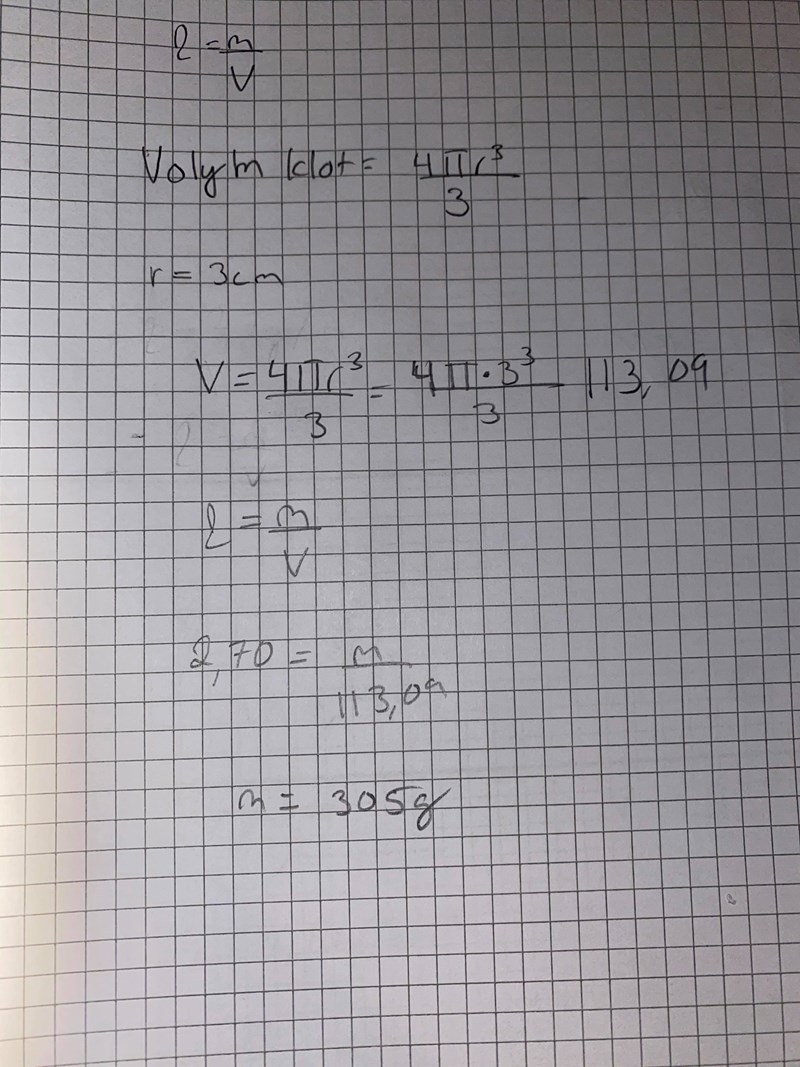 ρ = m/V
Volym klot = 4πr³/3
r = 3cm
V = 4πr³/3 = 4π·3³/3 113,09
ρ = m/V
2,70 = m/113,09
m = 305g